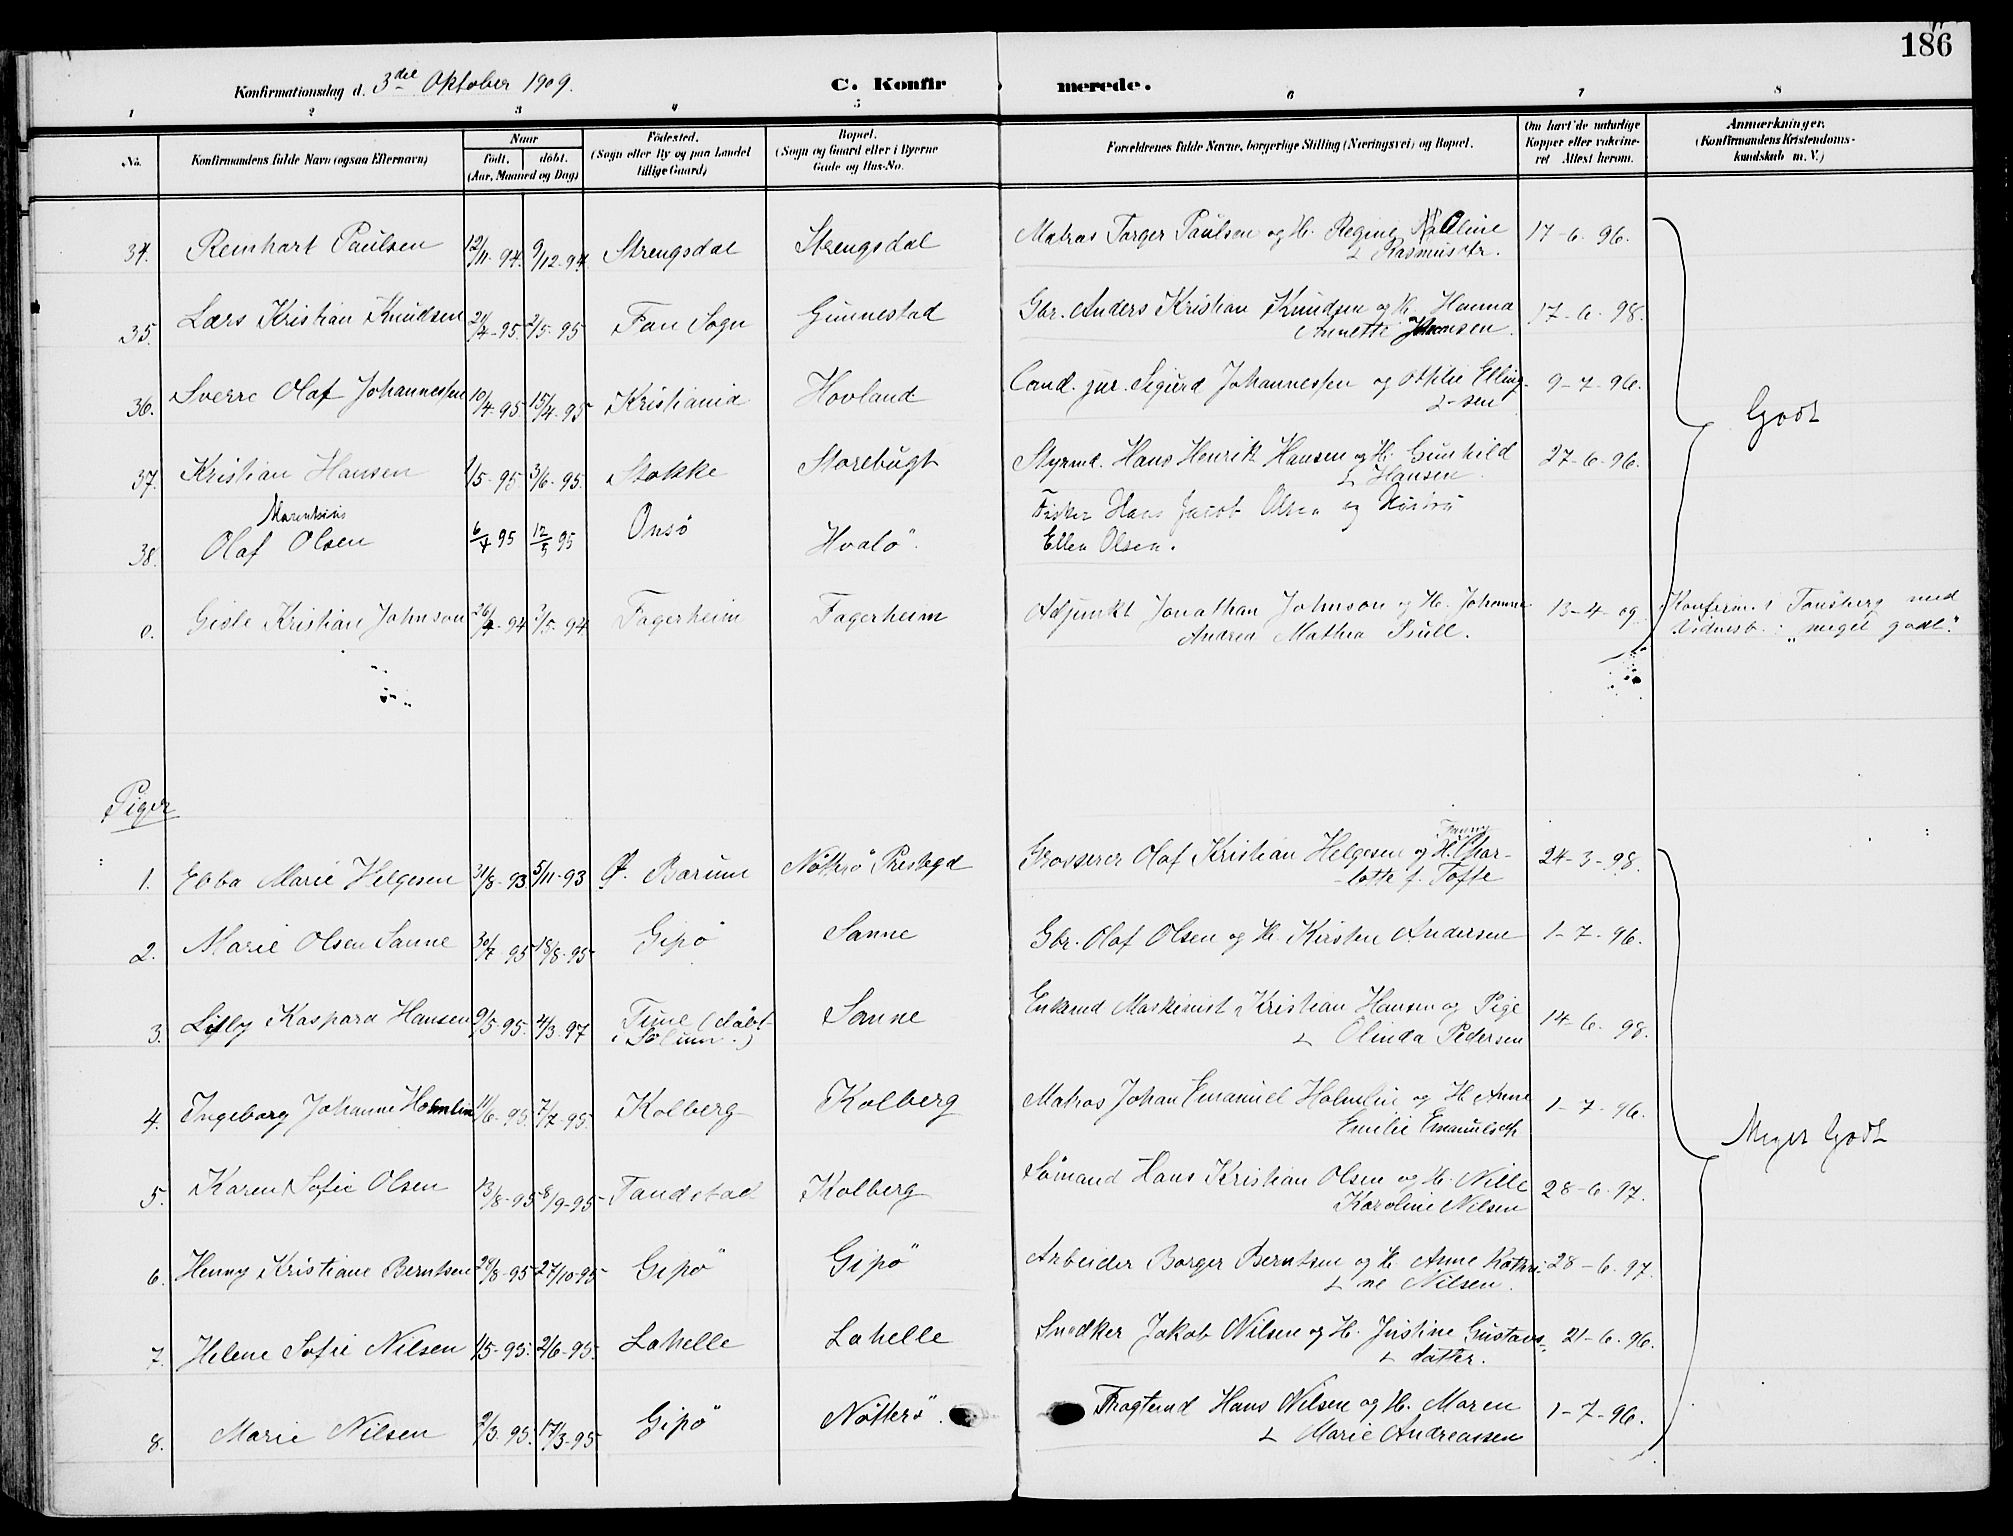 186
Konfirmationsdag d. 3die Oktober 1909.
C. Konfirmerede.
1 2 3 4 5 6 7 8
No.
Konfirmandens fulde Navn (ogsaa Efternavn)
Naar
født. døbt.
(Aar, Maaned og Dag)
Fødested.
(Sogn eller By og paa Landet
tillige Gaard)
Bopæl.
(Sogn og Gaard eller i Byerne
Gade og Hus-No.
Forældrenes fulde Navne, borgerlige Stilling (Næringsvei) og Bopæl.
Om havt de naturlige
Kopper eller vaksine-
ret Attest herom.
Anmærkninger.
(Konfirmandens Kristendoms-
kundskab m. V.)
34. Reinhart Paulsen 12/11-94. 9/12-94. Strengsdal Strengsdal Matros Torger Paulsen og H. Regine Oline 17-6-96.
Rasmusdtr.
35. Lars Kristian Knudsen 24/4-95. 2/5-95 Fon Sogn Gunnestad Gbr. Anders Kristian Knudsen og H. Hanna 17-6-98.
Annette Johansen.
36. Sverre Olaf Johannessen 10/4-95 15/4-95 Kristiania Hovland Cand. jur. Sigurd Johannessen og Othilie Elling- 9-7-96.
sen
Godt
37. Kristian Hansen 1/5-95 3/6-95. Stokke Storebugt Styrmd. Hans Henrik Hansen og H. Gunhild 27-6-96.
Hansen
Marentius
38. Olaf Olsen 6/4 95 12/5 95 Onsö Hvalö. Fisker Hans Jacob Olsen og Hustru
Ellen Olsen.
0. Gisle Kristian Johnson 26/4-94 3/5-94 Fagerheim Fagerheim Adjunkt Jonathan Johnson og H. Johanne 13-4-09. Konfirm. i Tønsberg med
Andrea Mathea Bull. Vidnesb.: "meget godt".
Piger
1. Ebba Marie Helgesen 31/8-93 5/11-93 Ø. Bærum Nötterö Prestegd Grosserer Olaf Kristian Helgesen og H. Fanny Char- 24-3-98.
lotte f. Tofte
2. Marie Olsen Sanne 30/7-95 18/8-95 Gipö Sanne Gbr. Olaf Olsen og H. Kirsten Andersen 1-7-96.
3. Lilly Kaspara Hansen 9/5-95. 4/3-97 Tune (döbt Sanne Enkemd Maskinist Kristian Hansen og Pige 14-6-98.
i Solum.) Olinda Pedersen
4. Ingeborg Johanne Holmlin 11/6-95. 7/7-95. Kolberg Kolberg Matros Johan Emanuel Holmlin og H. Anne 1-7-96.
Emilie Emanuelsen
Meget Godt
5. Karen Sofie Olsen 13/8-95 8/9-95 Tandstad Kolberg Sömand Hans Kristian Olsen og H. Nille 28-6-97.
Karoline Nilsen
6. Henny Kristiane Berntsen 28/8-95 27/10-95 Gipö Gipö Arbeider Borger Berntsen og H. Anne Kathri- 28-6-97.
ne Nilsen.
7. Helene Sofie Nilsen 1/5-95. 2/6-95. Lahelle Lahelle Snedker Jakob Nilsen og H. Justine Gustavs- 21-6-96.
datter.
8. Marie Nilsen 2/3-95. 17/3-95 Gipö Nötterö. Fragtemd Hans Nilsen og H. Maren 1-7-96.
Marie Andreassen